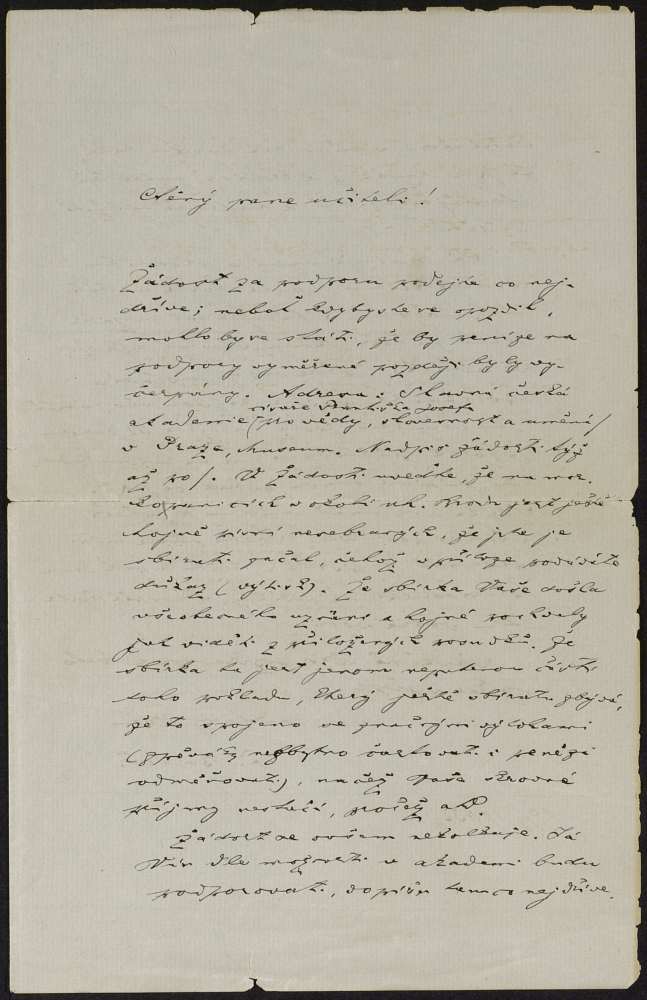 Ctěný pane učiteli!
Žádost za podporu podejte co nej-
dříve; neboť kdybyste se opozdil,
mohlo by se státi, že by peníze na
podpory vyměřené později byly vy-
čerpány. Adresa: Slavná česká
císaře Františka Josefa
akademie /pro vědy, slovesnost a umění/
v Praze, Museum. Nadpis žádosti týž
až po /. V žádosti uveďte, že na mor.
kopanicích v okolí uh. Brodu jest ještě
hojně písní nesebraných, že jste je
sbírati začal, čehož v příloze podáváte
důkaz (výtisk). Že sbírka Vaše došla
všeobecného uznání a hojné pochvaly
jak viděti z přiložených posudků. Že
sbírka ta jest jenom nepatrnou částí
toho pokladu, který ještě sbírati zbývá,
že to spojeno se značnými výlohami
(zpěváky nezbytno častovati i penězi
odměňovati), na něž Vaše skrovné
příjmy nestačí, pročež atd.
Žádost se ovšem nekolkuje. Já
Vás dle možnosti v akademii budu
podporovati, dopíšu tam co nejdříve.